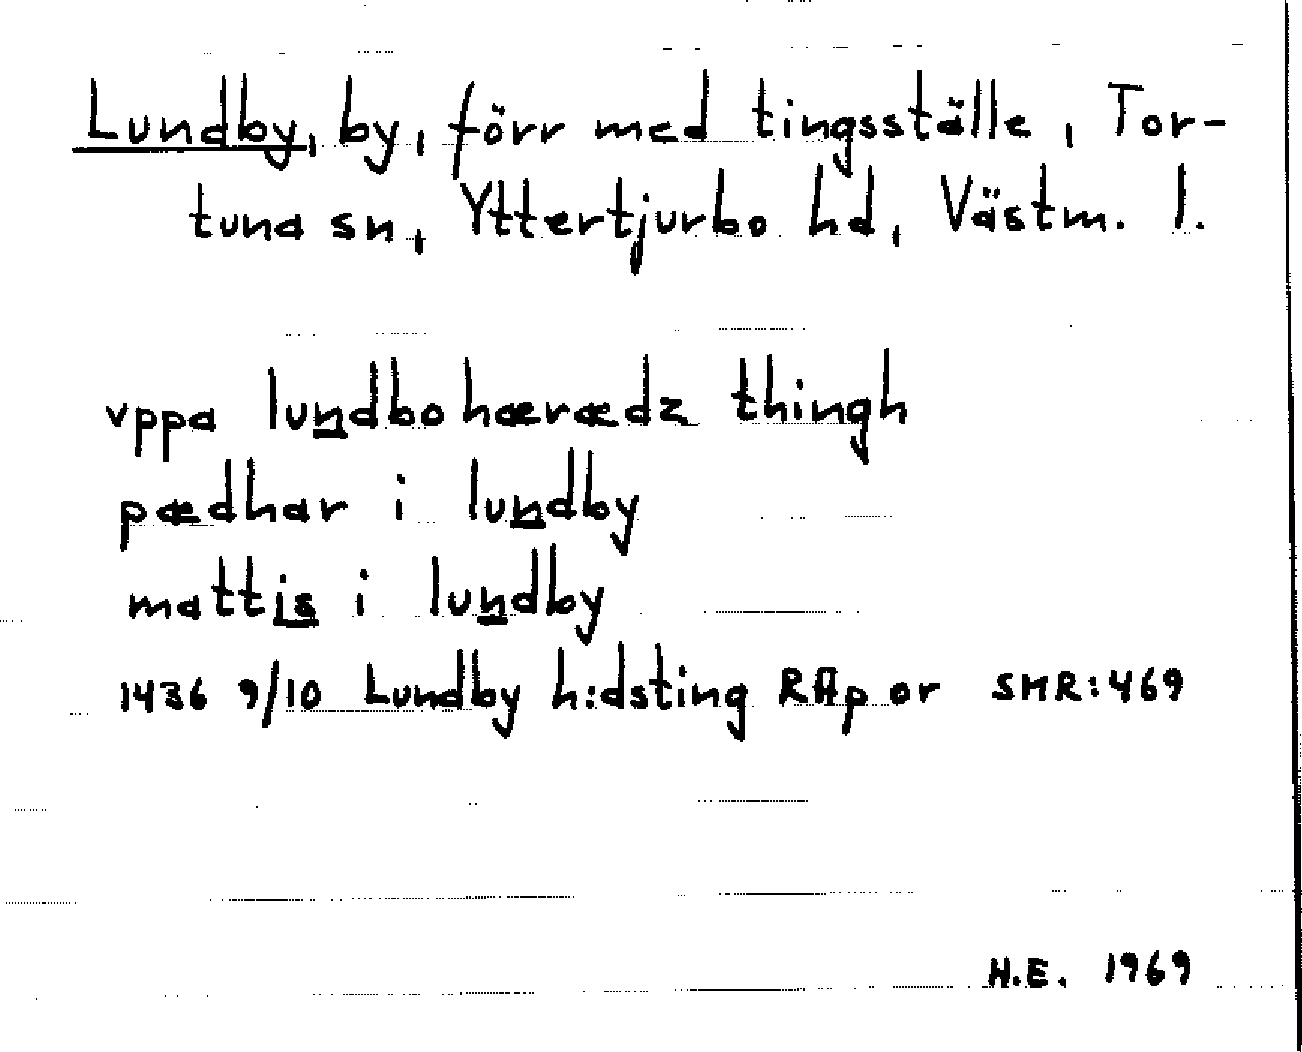 Lundby, by, förr med tingsställe, Tor-
tuna sn, Yttertjurbo hd, Västm. l.
vppa lundbo hærædz thingh
pædhar i lundby
mattis i lundby
1436 9/10 Lundby h:dsting RAp or SMR:469
H.E. 1969